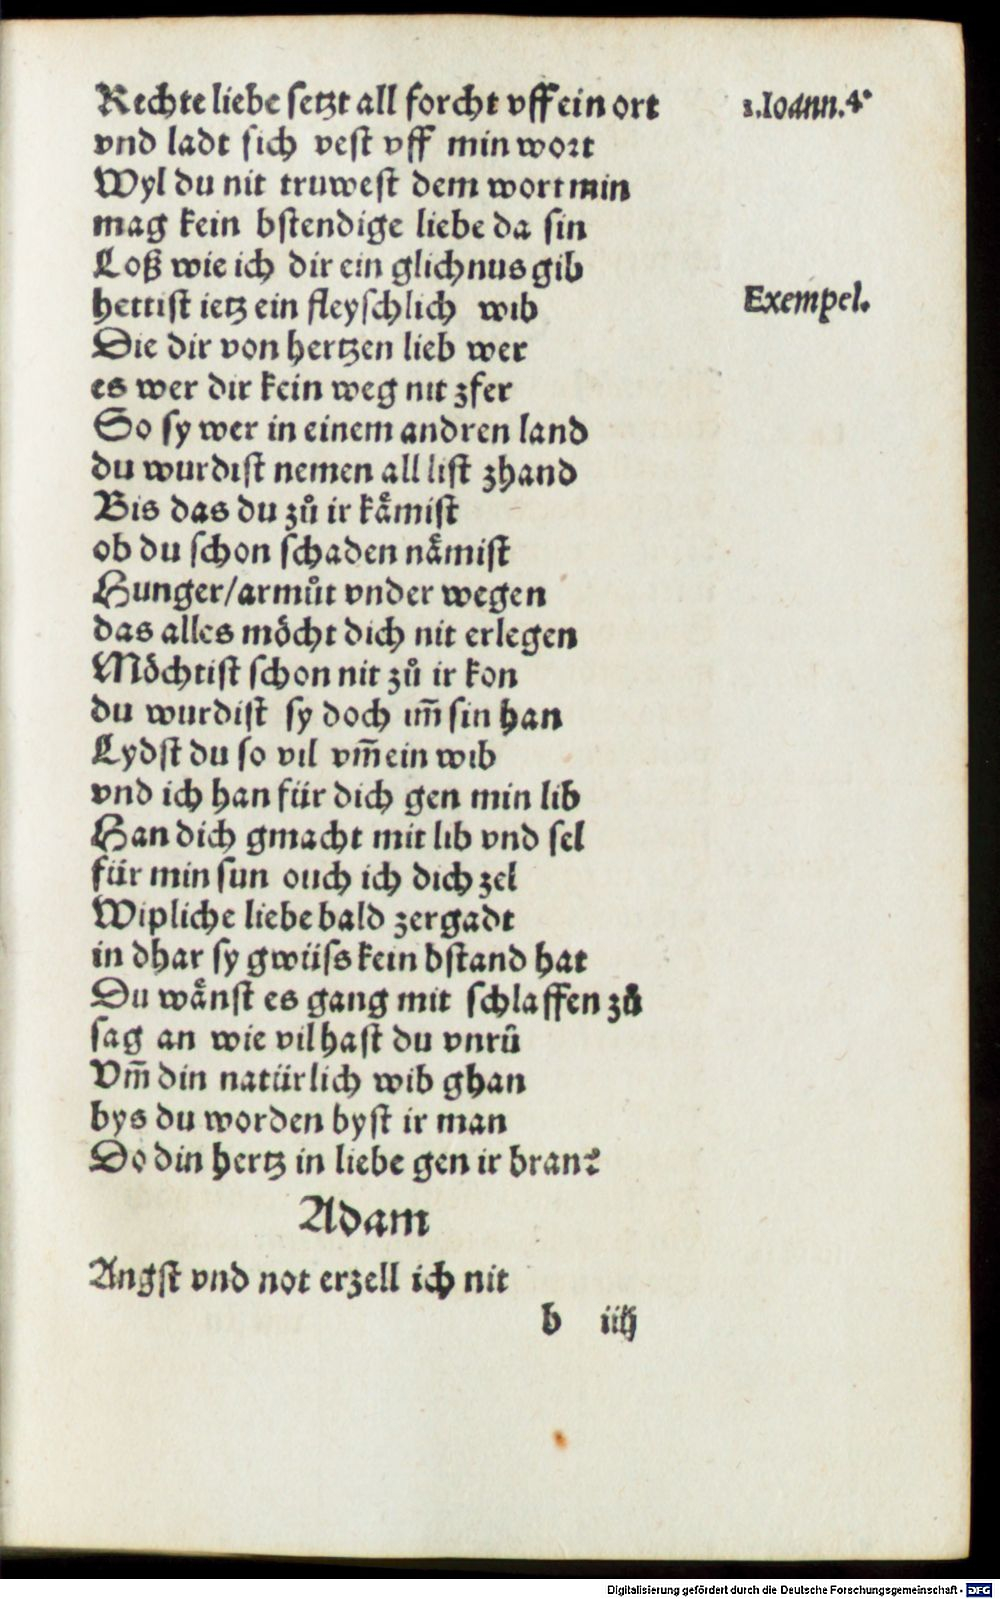 Rechte liebe setzt all forcht vff ein ort
1.Ioann.4.
vnd ladt sich vest vff min wort
Wyl du nit truwest dem wort min
mag kein bstendige liebe da sin
Loß wie ich dir ein glichnus gib
hettist ietz ein fleyschlich wib
Exempel.
Die dir von hertzen lieb wer
es wer dir kein weg nit zfer
So sy wer in einem andren land
du wurdist nemen all list zhand
Bis das du zů ir kaͤmist
ob du schon schaden naͤmist
Hunger/armůt vnder wegen
das alles moͤcht dich nit erlegen
Moͤchtist schon nit zů ir kon
du wurdist sy doch im̄ sin han
Lydst du so vil vm̄ ein wib
vnd ich han für dich gen min lib
Han dich gmacht mit lib vnd sel
für min sun ouch ich dich zel
Wipliche liebe bald zergadt
in dhar sy gwüss kein bstand hat
Du waͤnst es gang mit schlaffen zů
sag an wie vil hast du vnrů
Vm̄ din natürlich wib ghan
bys du worden byst ir man
Do din hertz in liebe gen ir brant
Adam
Angst vnd not erzell ich nit
b iiij
Digitalisierung gefördert durch die Deutsche Forschungsgemeinschaft - DFG